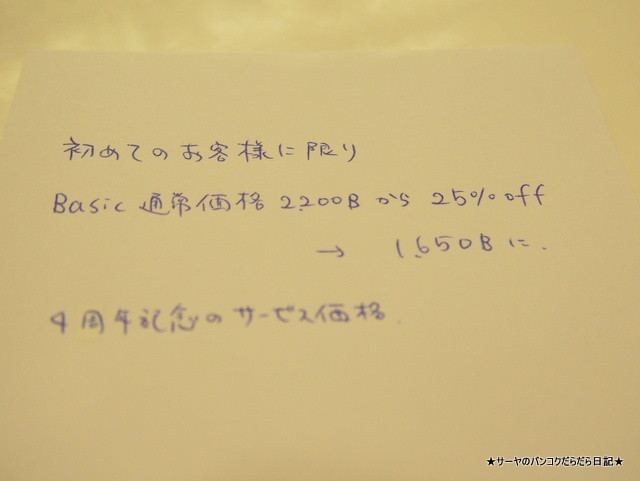 初めてのお客様に限り
Basic 通常価格 2,200B から 25% off
→ 1,650B に.
4周年記念のサービス価格.
★サーヤのバンコクだらだら日記★